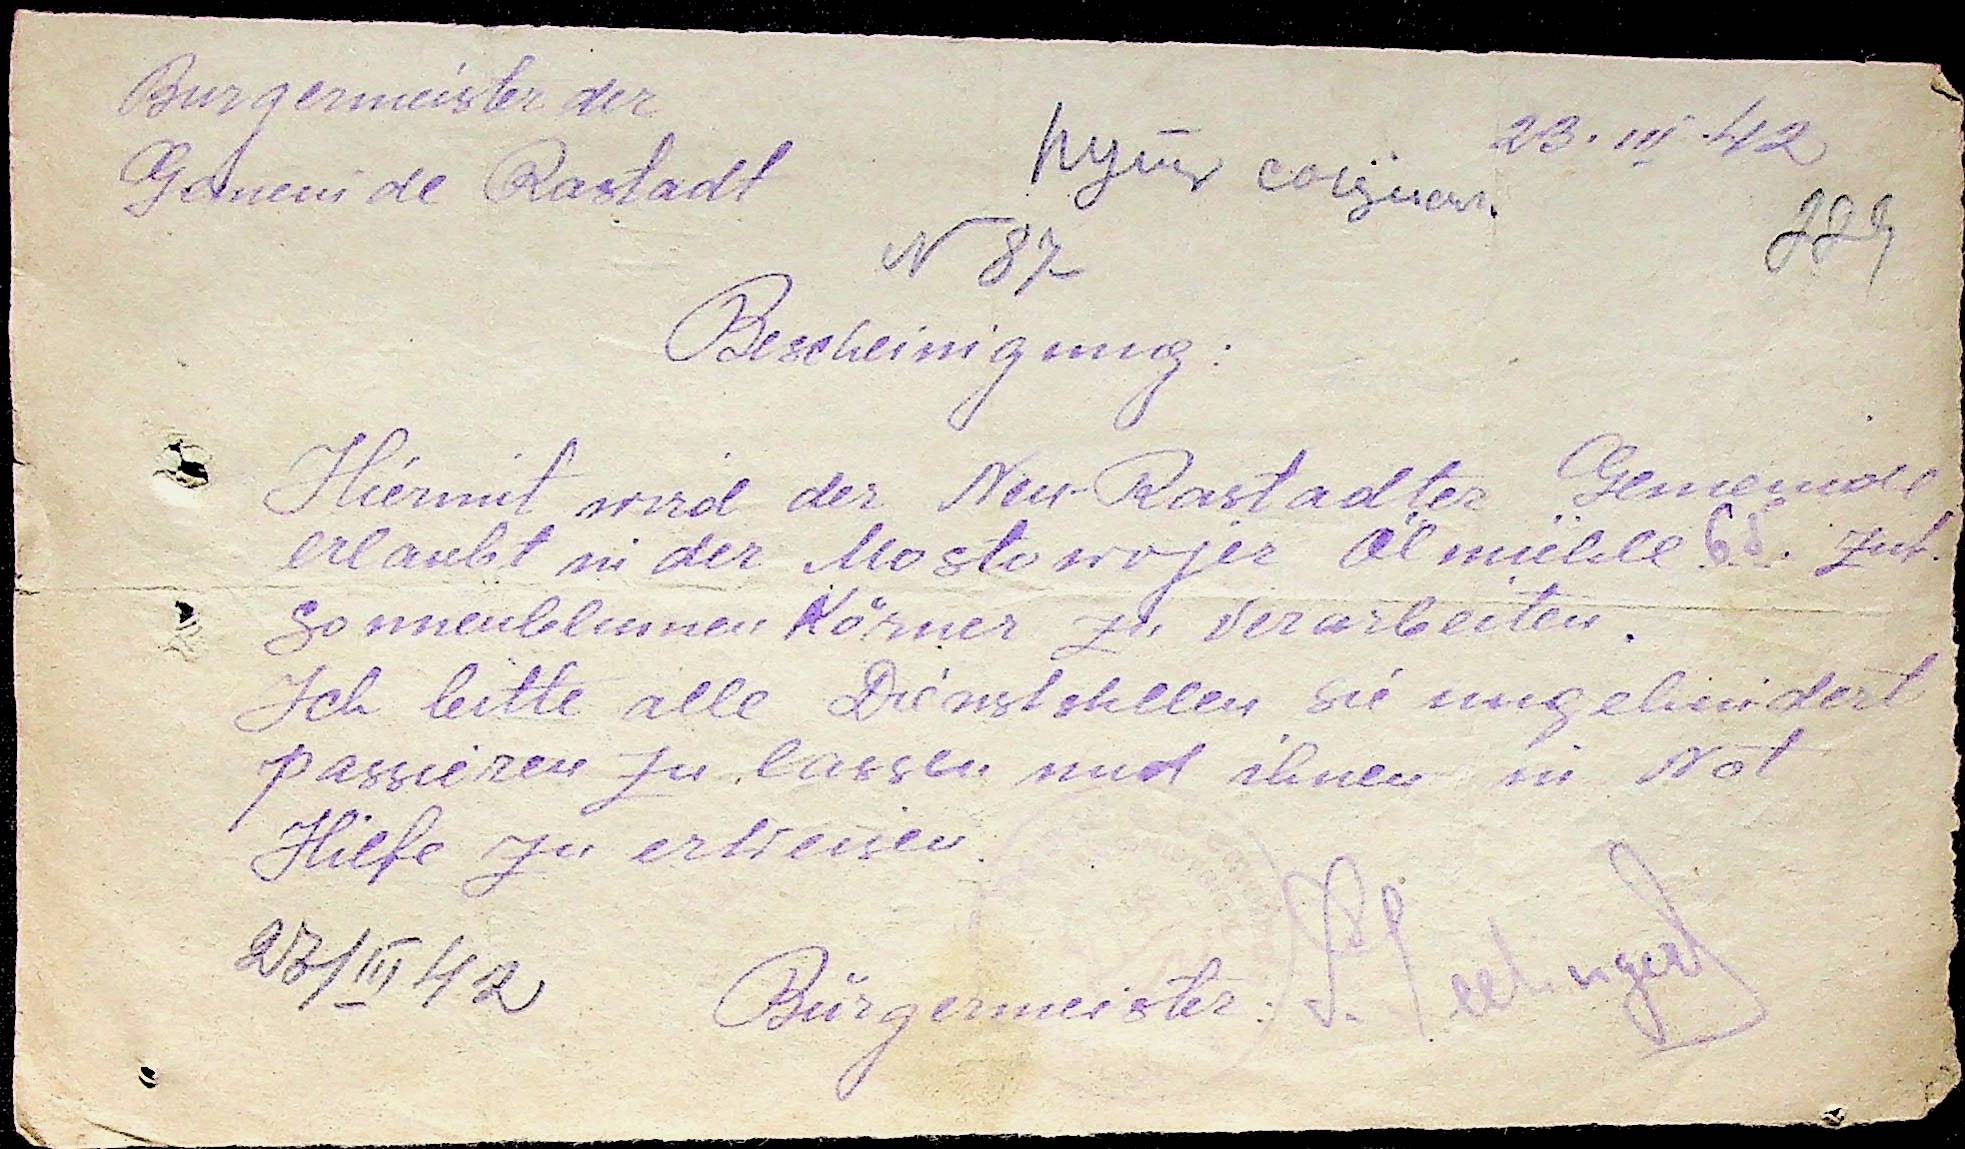 Burgermeister der
Gemeinde Rastadt
23.III.42
N 87
Bescheinigung:
Hiermit wird der Neu-Rastadter Gemeinde
erlaubt in der Mostowojer Ölmühle 68. Znt.
Sonnenblumen Körner zu verarbeiten.
Ich bitte alle Dienststellen sie ungehindert
passieren zu lassen und ihnen in Not
Hilfe zu erweisen.
27/III 42
Bürgermeister: